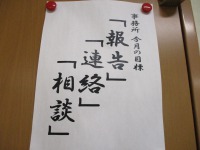 事務所 今月の目標
「報告」
「連絡」
「相談」